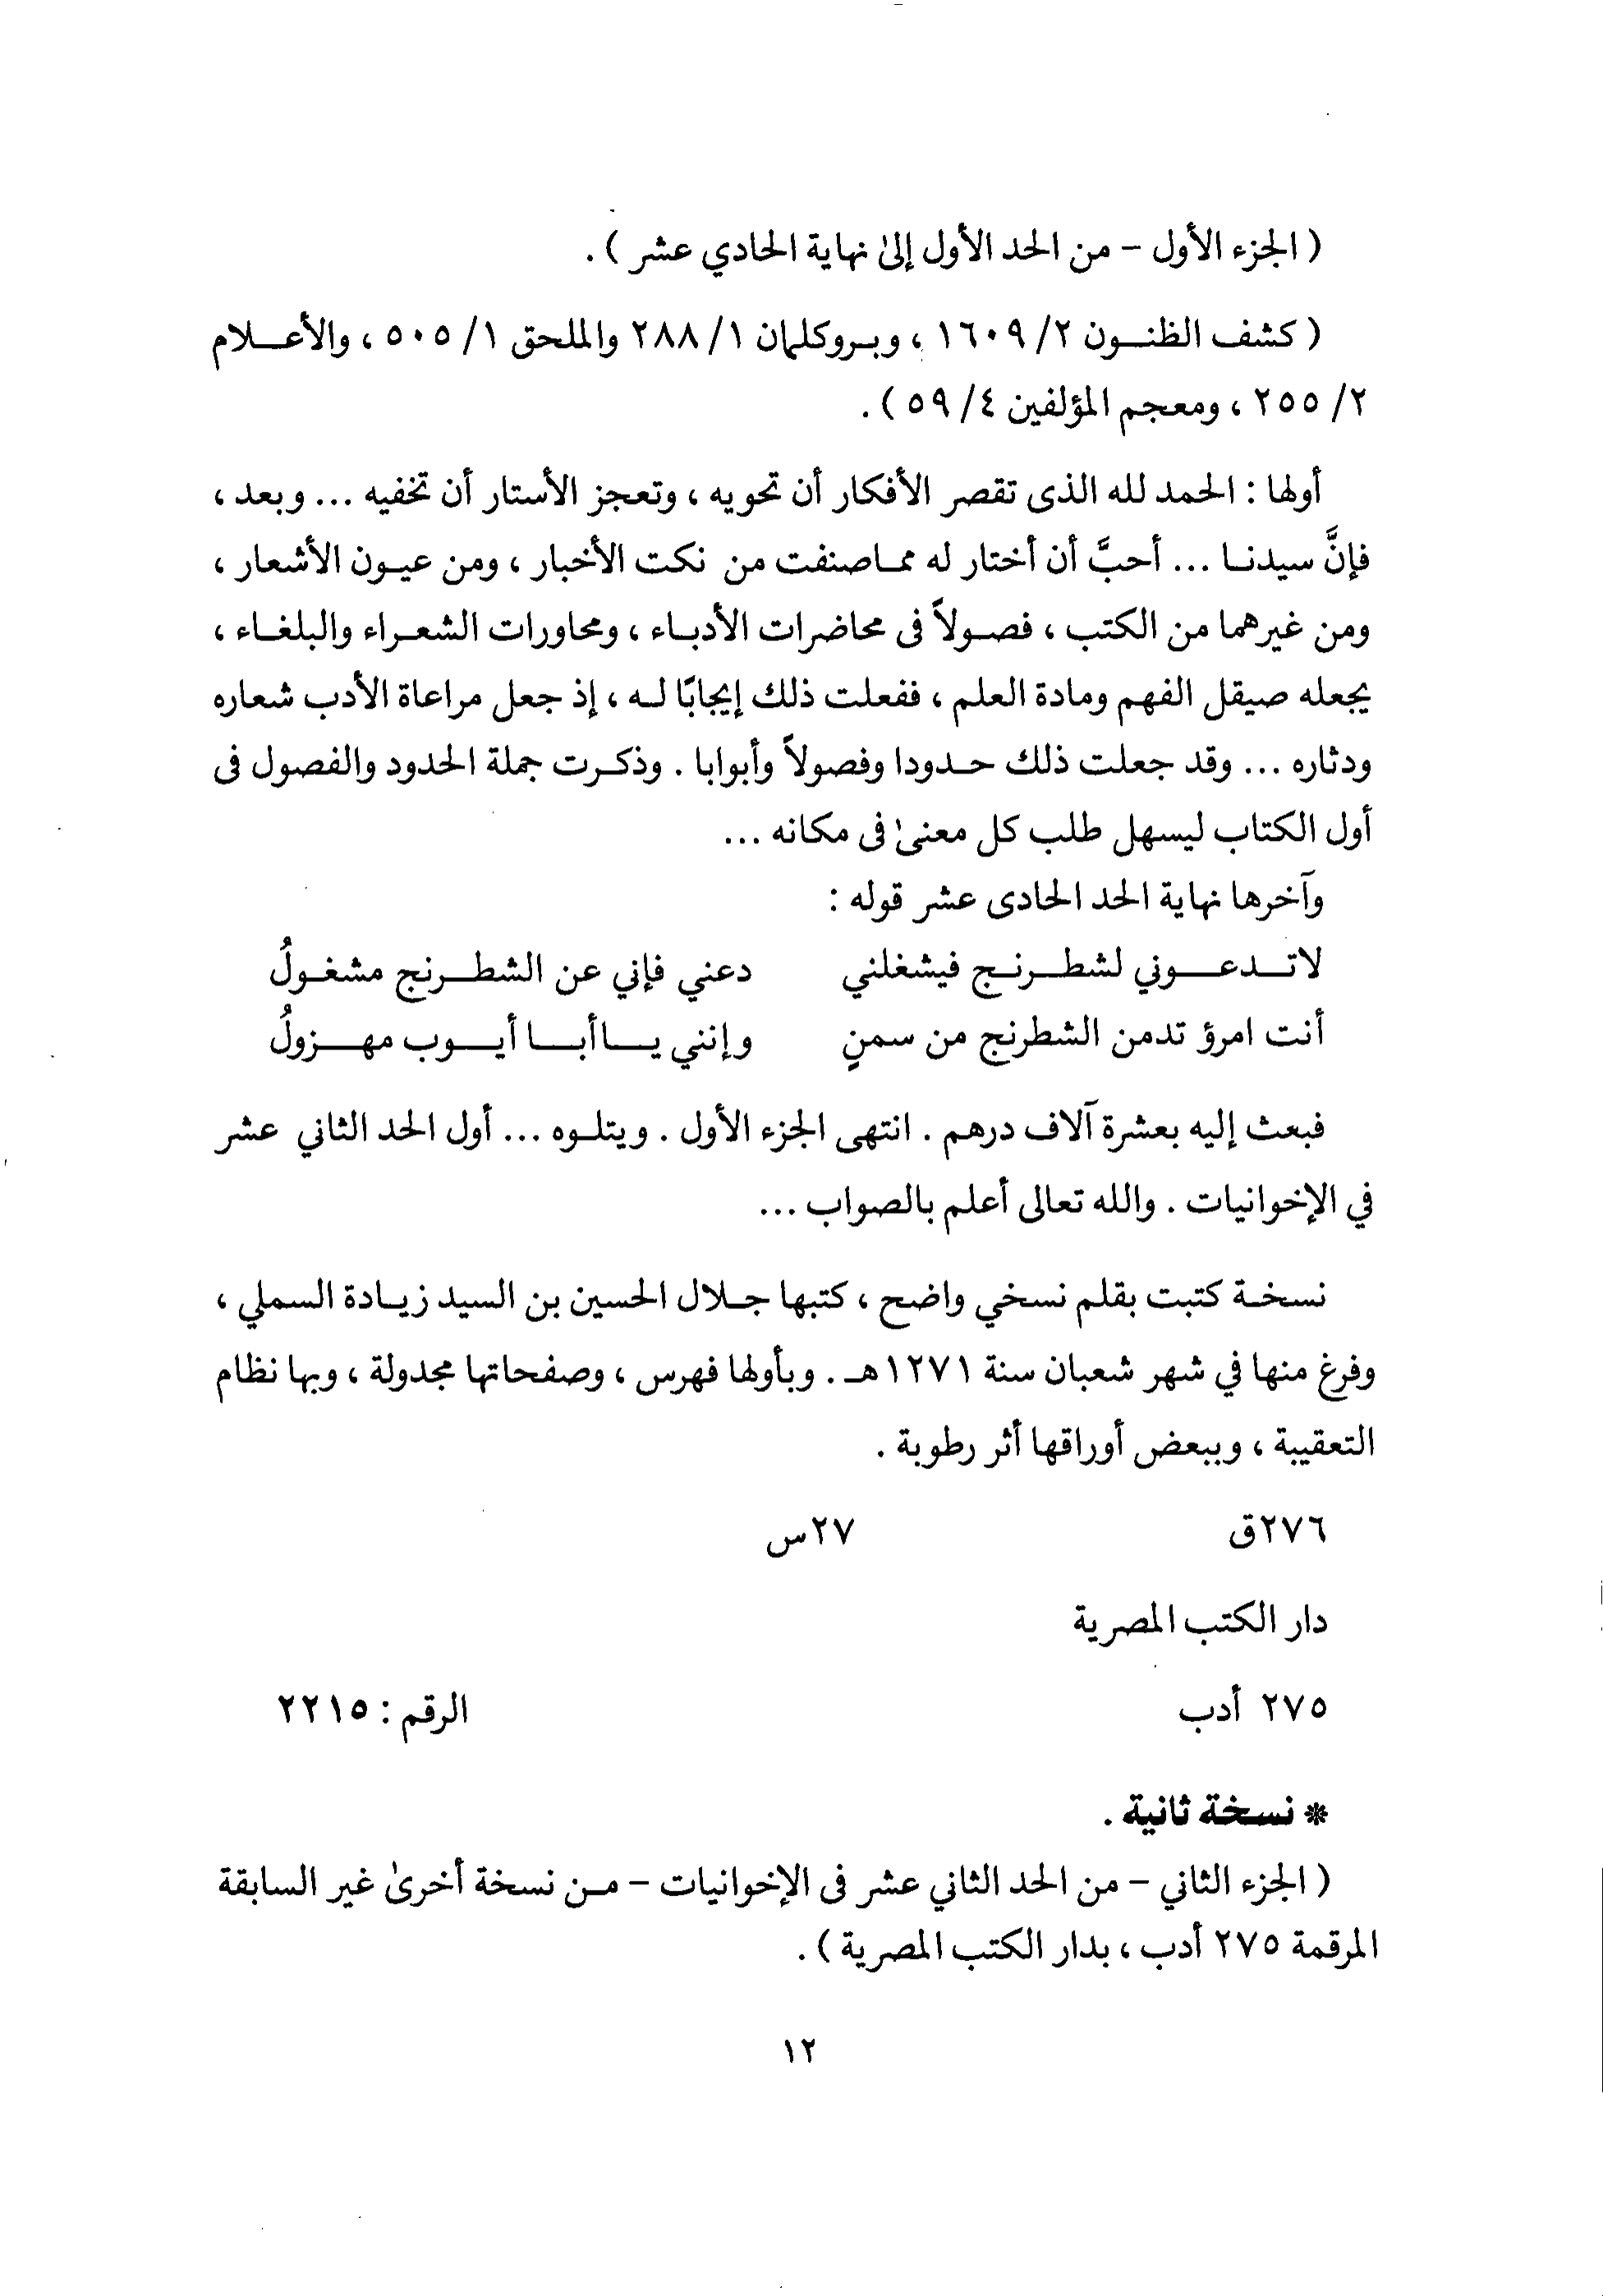 ( الجزء الأول – من الحد الأول إلىٰ نهاية الحادي عشر ) .
( كشف الظنون ٢/ ١٦٠٩ ، وبروكلمان ١/ ٢٨٨ والملحق ١/ ٥٠٥ ، والأعلام
٢/ ٢٥٥ ، ومعجم المؤلفين ٤/ ٥٩ ) .
أولها : الحمد لله الذى تقصر الأفكار أن تحويه ، وتعجز الأستار أن تخفيه ... وبعد ،
فإنَّ سيدنا ... أحبَّ أن أختار له مماصنفت من نكت الأخبار ، ومن عيون الأشعار ،
ومن غيرهما من الكتب ، فصولاً فى محاضرات الأدباء ، ومحاورات الشعراء والبلغاء ،
يجعله صيقل الفهم ومادة العلم ، ففعلت ذلك إيجابًا له ، إذ جعل مراعاة الأدب شعاره
ودثاره ... وقد جعلت ذلك حدودا وفصولاً وأبوابا . وذكرت جملة الحدود والفصول فى
أول الكتاب ليسهل طلب كل معنىٰ فى مكانه ...
وآخرها نهاية الحد الحادى عشر قوله :
لاتدعوني لشطرنج فيشغلني دعني فإني عن الشطرنج مشغولُ
أنت امرؤ تدمن الشطرنج من سمنٍ وإنني ياأبا أيوب مهزولُ
فبعث إليه بعشرة آلاف درهم . انتهى الجزء الأول . ويتلوه ... أول الحد الثاني عشر
في الإخوانيات . والله تعالى أعلم بالصواب ...
نسخة كتبت بقلم نسخي واضح ، كتبها جلال الحسين بن السيد زيادة السملي ،
وفرغ منها في شهر شعبان سنة ١٢٧١هـ . وبأولها فهرس ، وصفحاتها مجدولة ، وبها نظام
التعقيبة ، وببعض أوراقها أثر رطوبة .
٢٧٦ق ٢٧س
دار الكتب المصرية
٢٧٥ أدب الرقم : ٢٢١٥
* نسخة ثانية .
( الجزء الثاني – من الحد الثاني عشر فى الإخوانيات – من نسخة أخرىٰ غير السابقة
المرقمة ٢٧٥ أدب ، بدار الكتب المصرية ) .
١٢